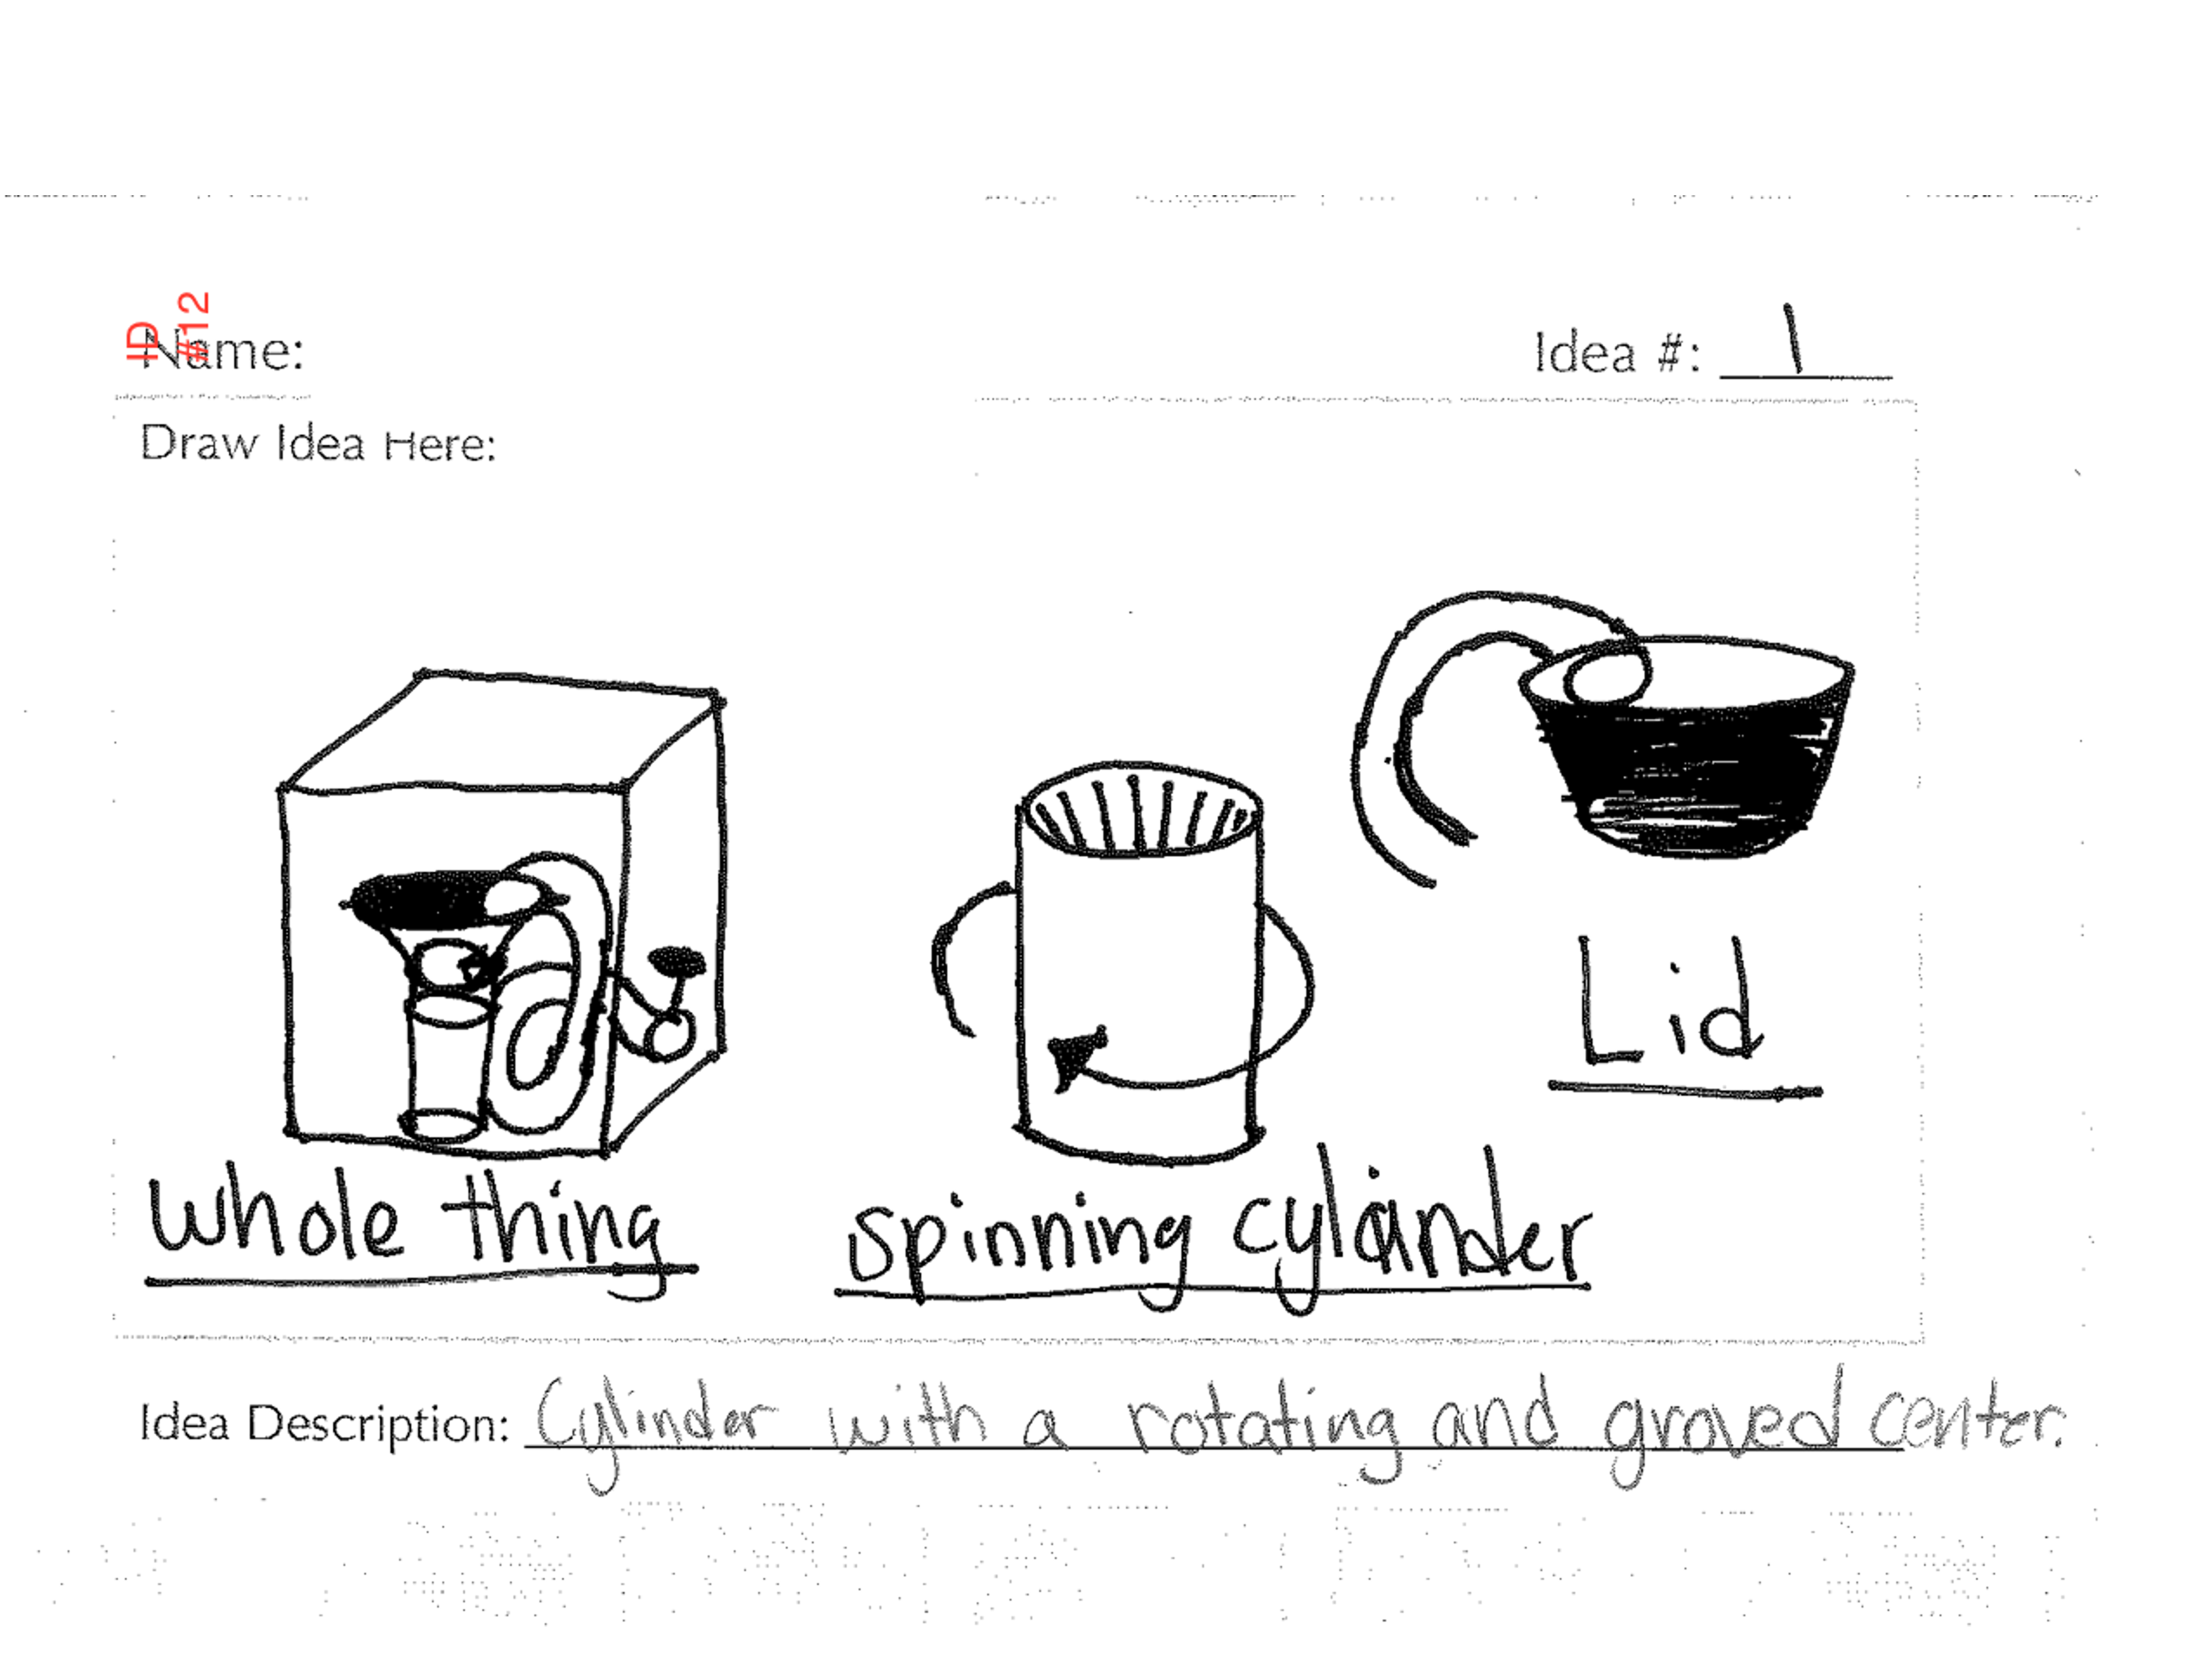 ID
#12
Name:
Idea #: 1
Draw Idea Here:
Lid
whole thing
spinning cylinder
Idea Description: Cylinder with a rotating and groved center.